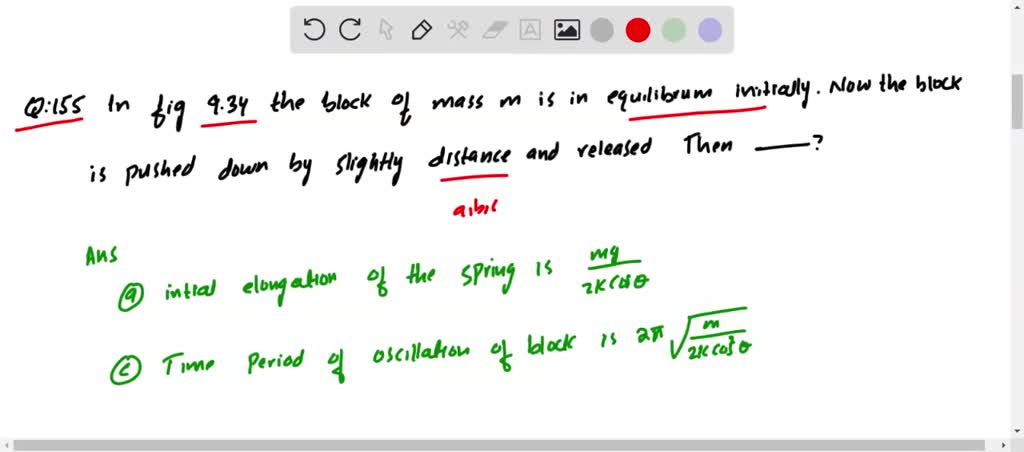 Q:155 In fig 9.34 the block of mass m is in equilibrum initially. Now the block
is pushed down by slightly distance and released Then ___?
a,b,c
Ans
(a) intial elongation of the spring is mg/2K cosθ
(c) Time Period of oscillation of block is 2π √(m/2K cos²θ)